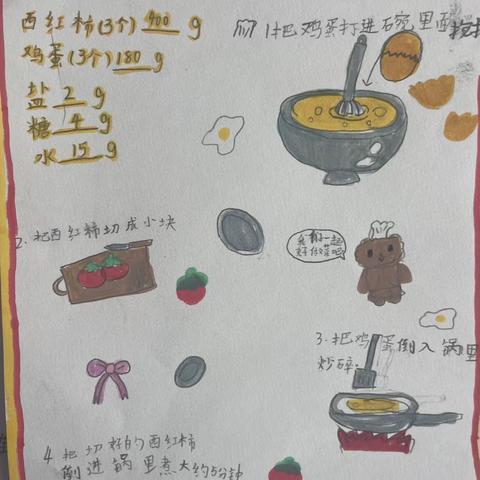 西红柿(3个) 400 g
鸡蛋(3个) 180 g
盐 2 g
糖 4 g
水 15 g
1.把鸡蛋打进碗里面
2.把西红柿切成小块
好好做菜吧
3.把鸡蛋倒入锅里
炒碎.
4 把切好的西红柿
倒进锅里煮大约5分钟